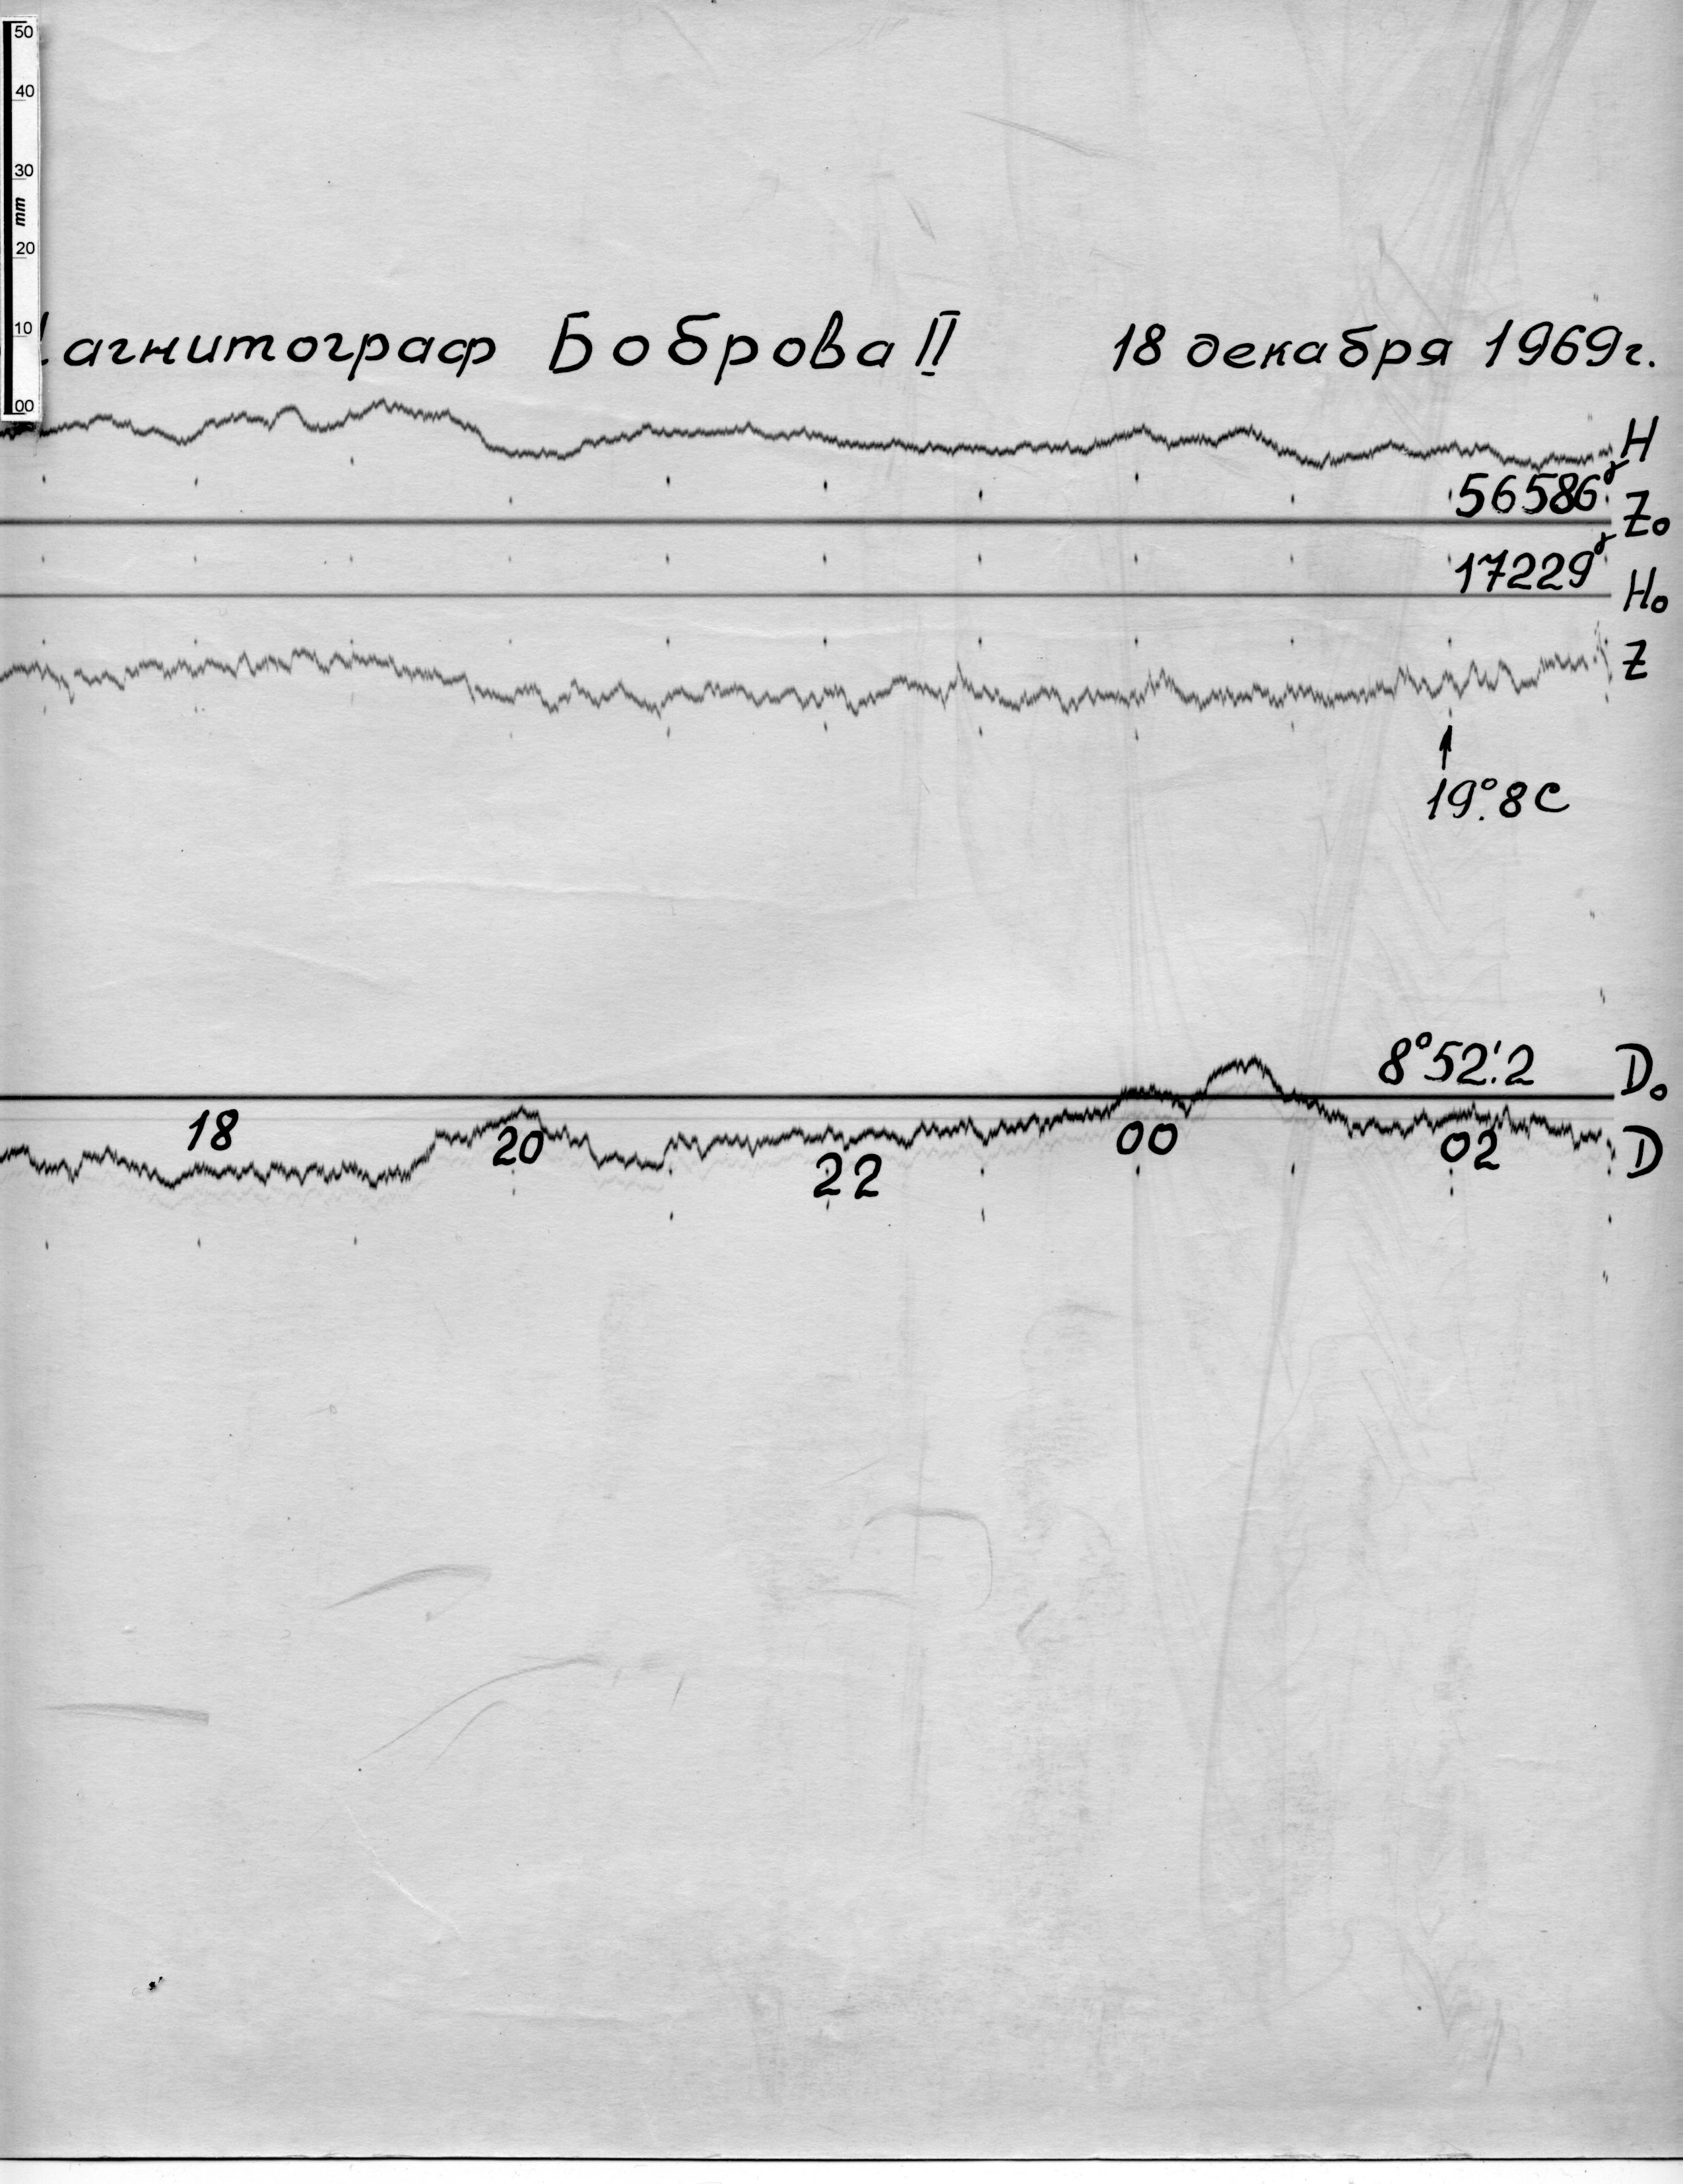 50
40
30
mm
20
10
00
агнитограф Боброва II 18 декабря 1969г.
H
56586γ Z₀
17229γ H₀
Z
19°.8 C
8°52'.2 D₀
18 20 22 00 02 D